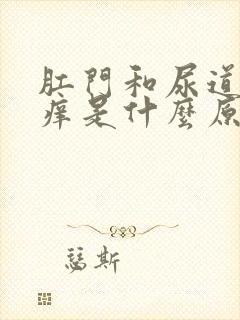 肛門和尿道
痒是什麼原
瑟斯